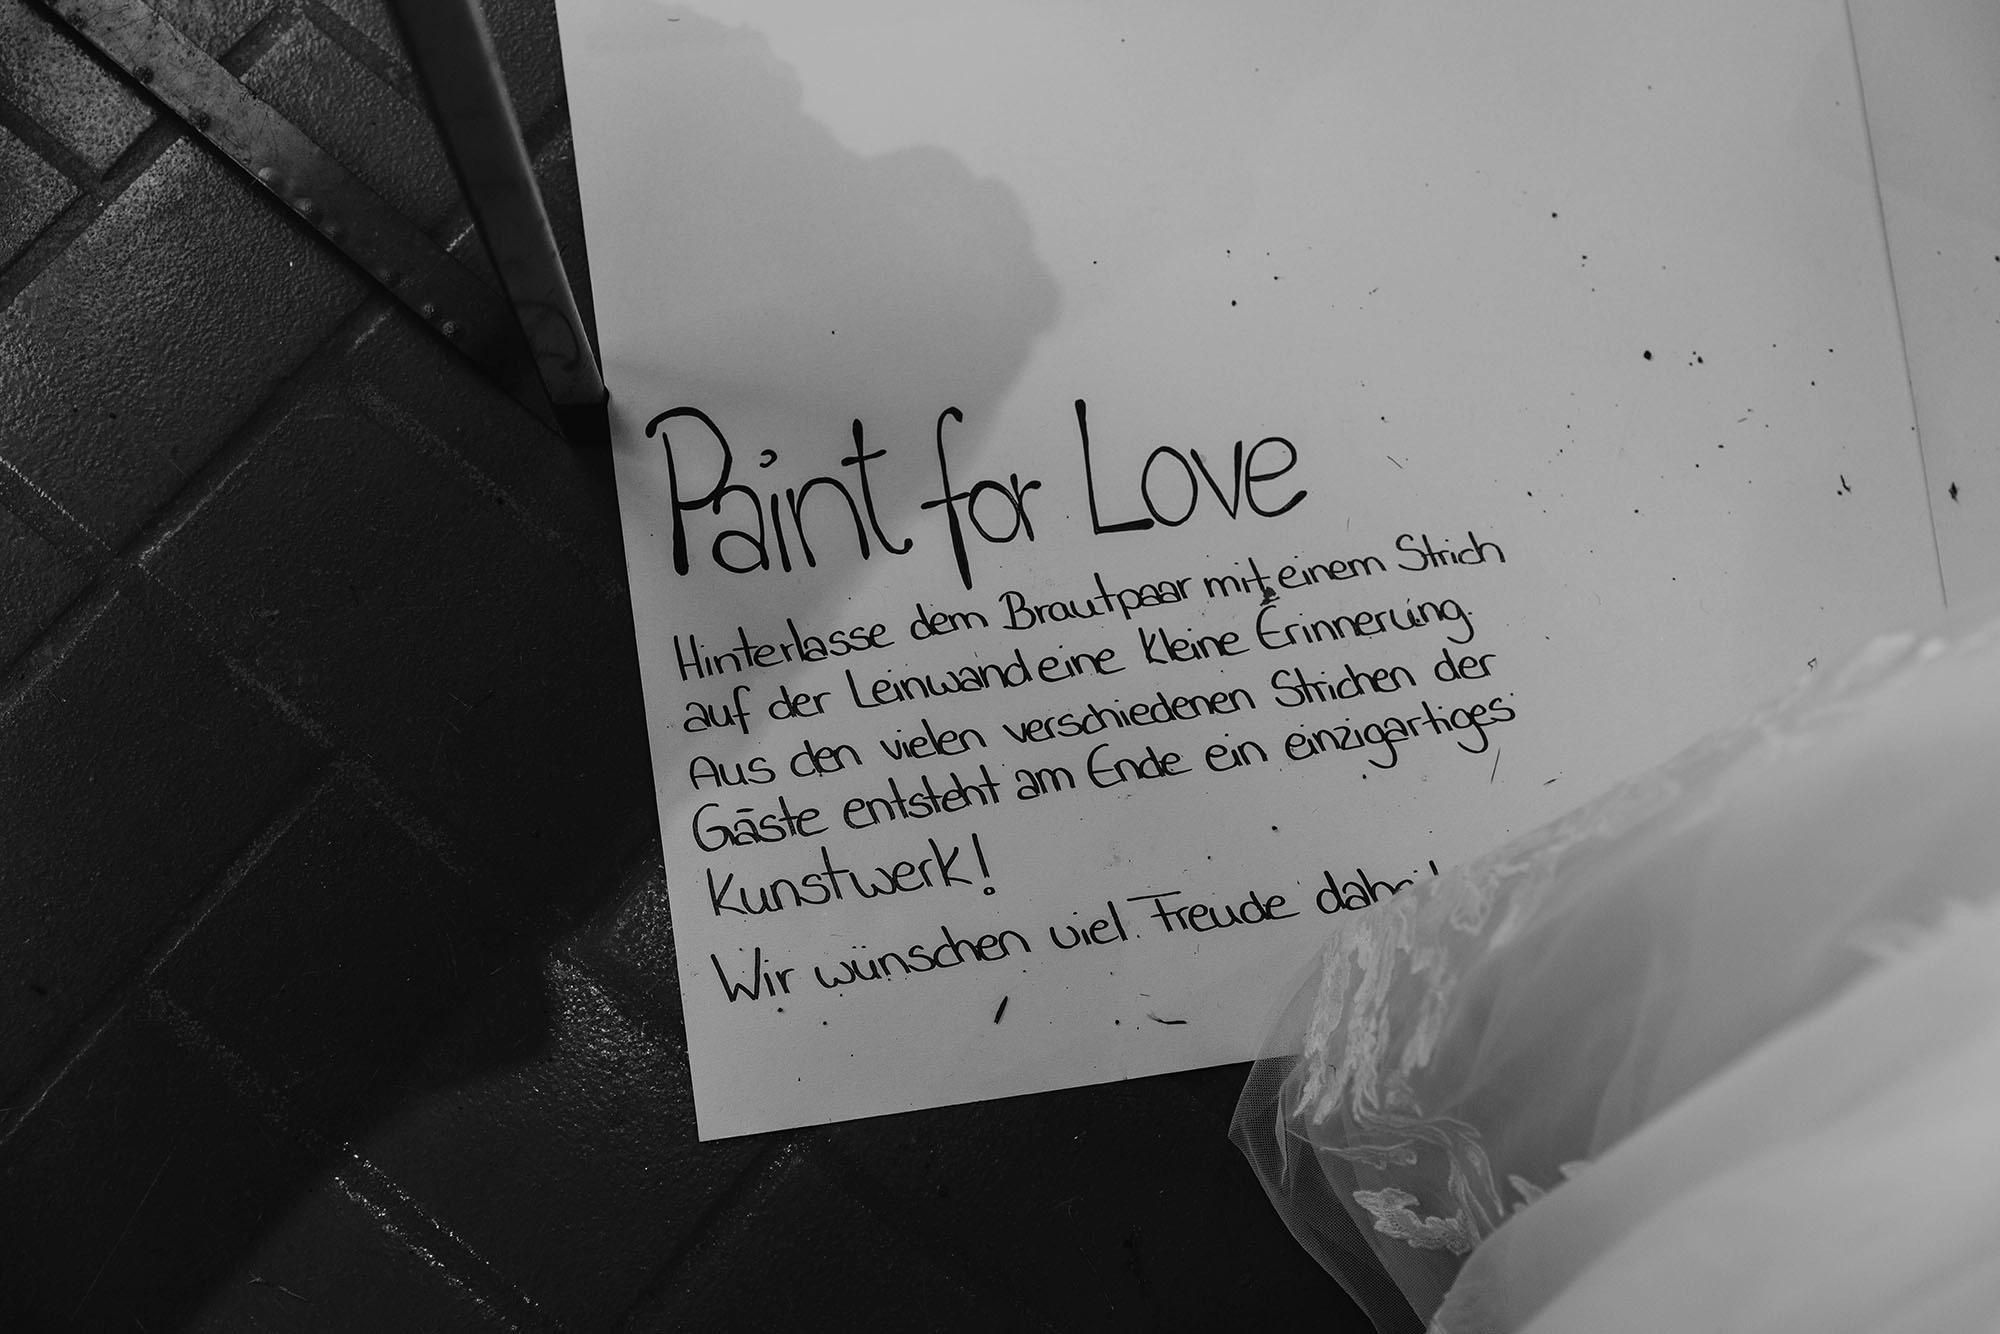 Paint for Love
Hinterlasse dem Brautpaar mit einem Strich
auf der Leinwand eine kleine Erinnerung.
Aus den vielen verschiedenen Strichen der
Gäste entsteht am Ende ein einzigartiges
Kunstwerk!
Wir wünschen viel Freude